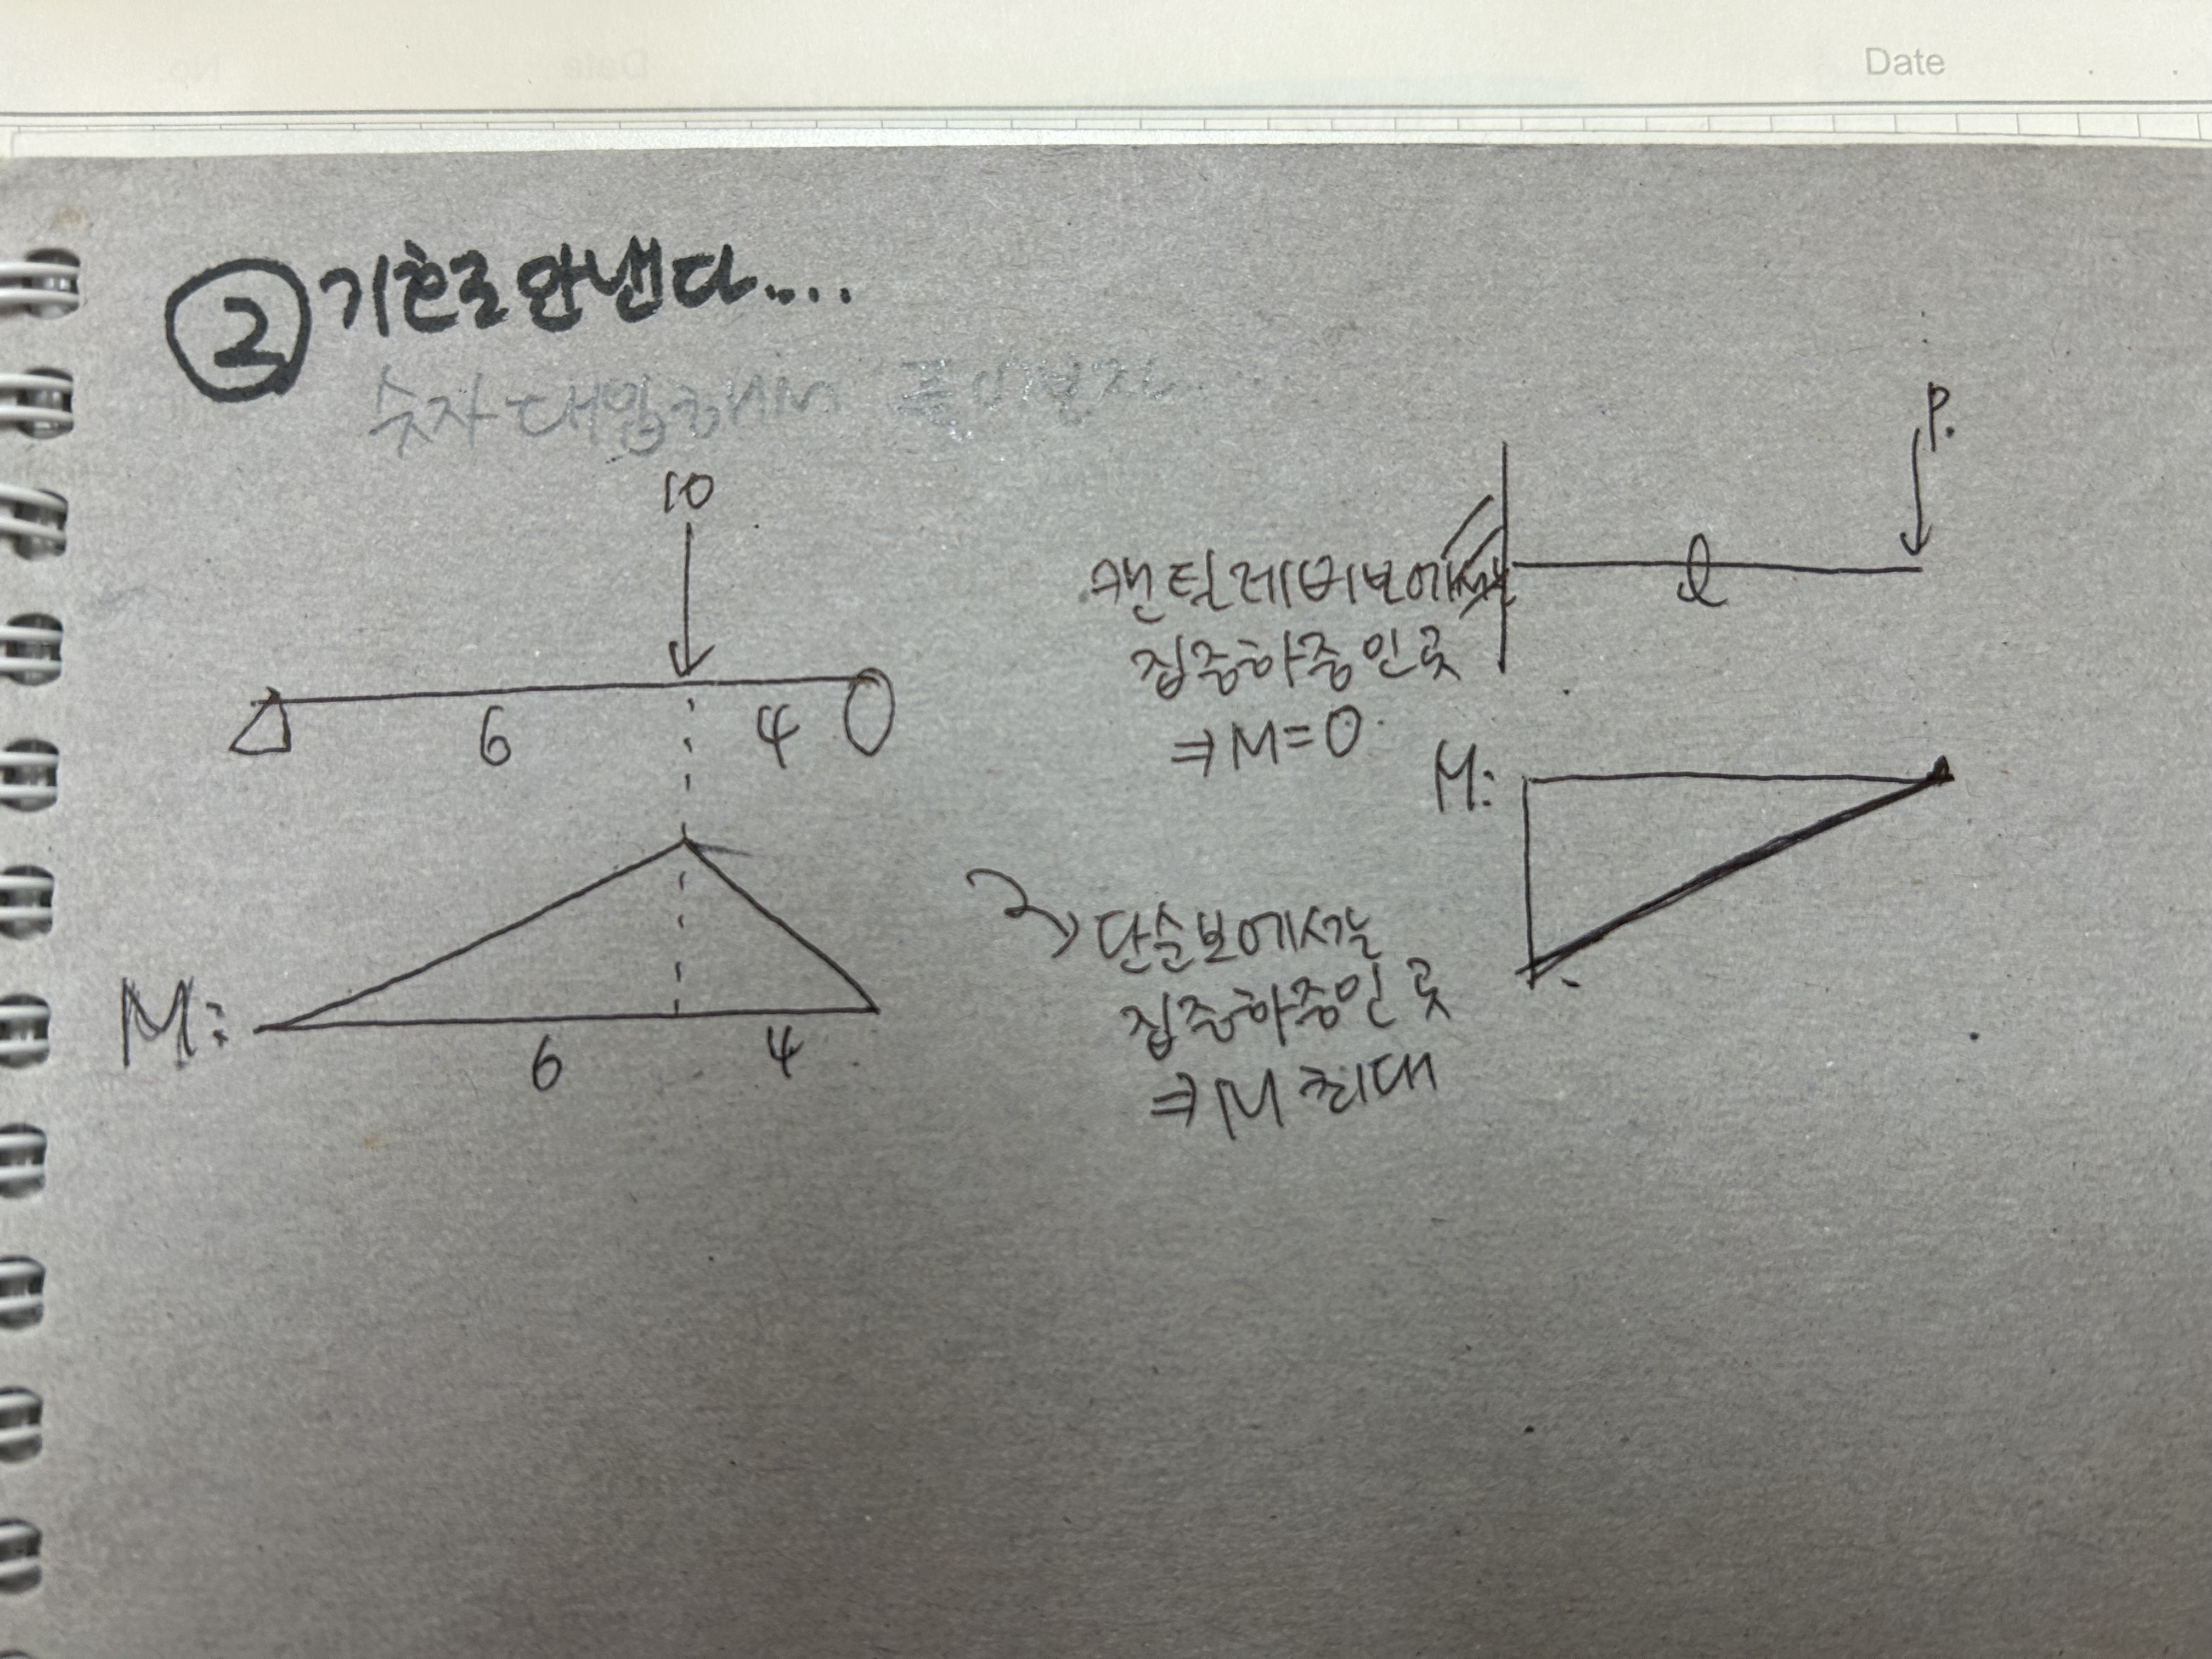 Date
② 기호로 안낸다....
숫자 대입해서 풀어보자
10
6 4
M:
6 4
P.
l
캔틸레버보에서는
집중하중인 곳
⇒ M = 0
M:
단순보에서는
집중하중인 곳
⇒ M 최대